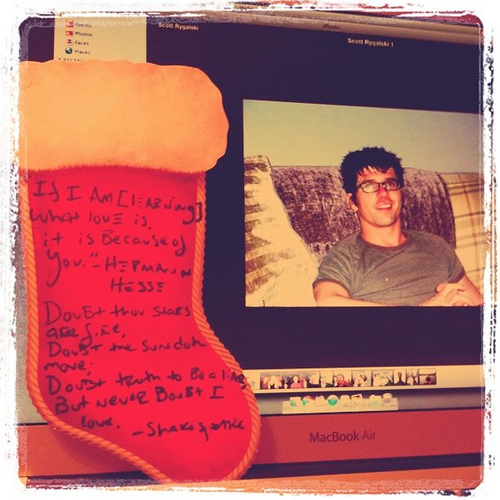 Scott Rygalski
Scott Rygalski 1
Events
Photos
Faces
Places
"If I Am [learning]
what love is,
it is Because of
You." - Hermann
Hesse
Doubt thou stars
are fire,
Doubt the sun doth
move,
Doubt truth to Be a liar
But never Doubt I
love.
MacBook Air